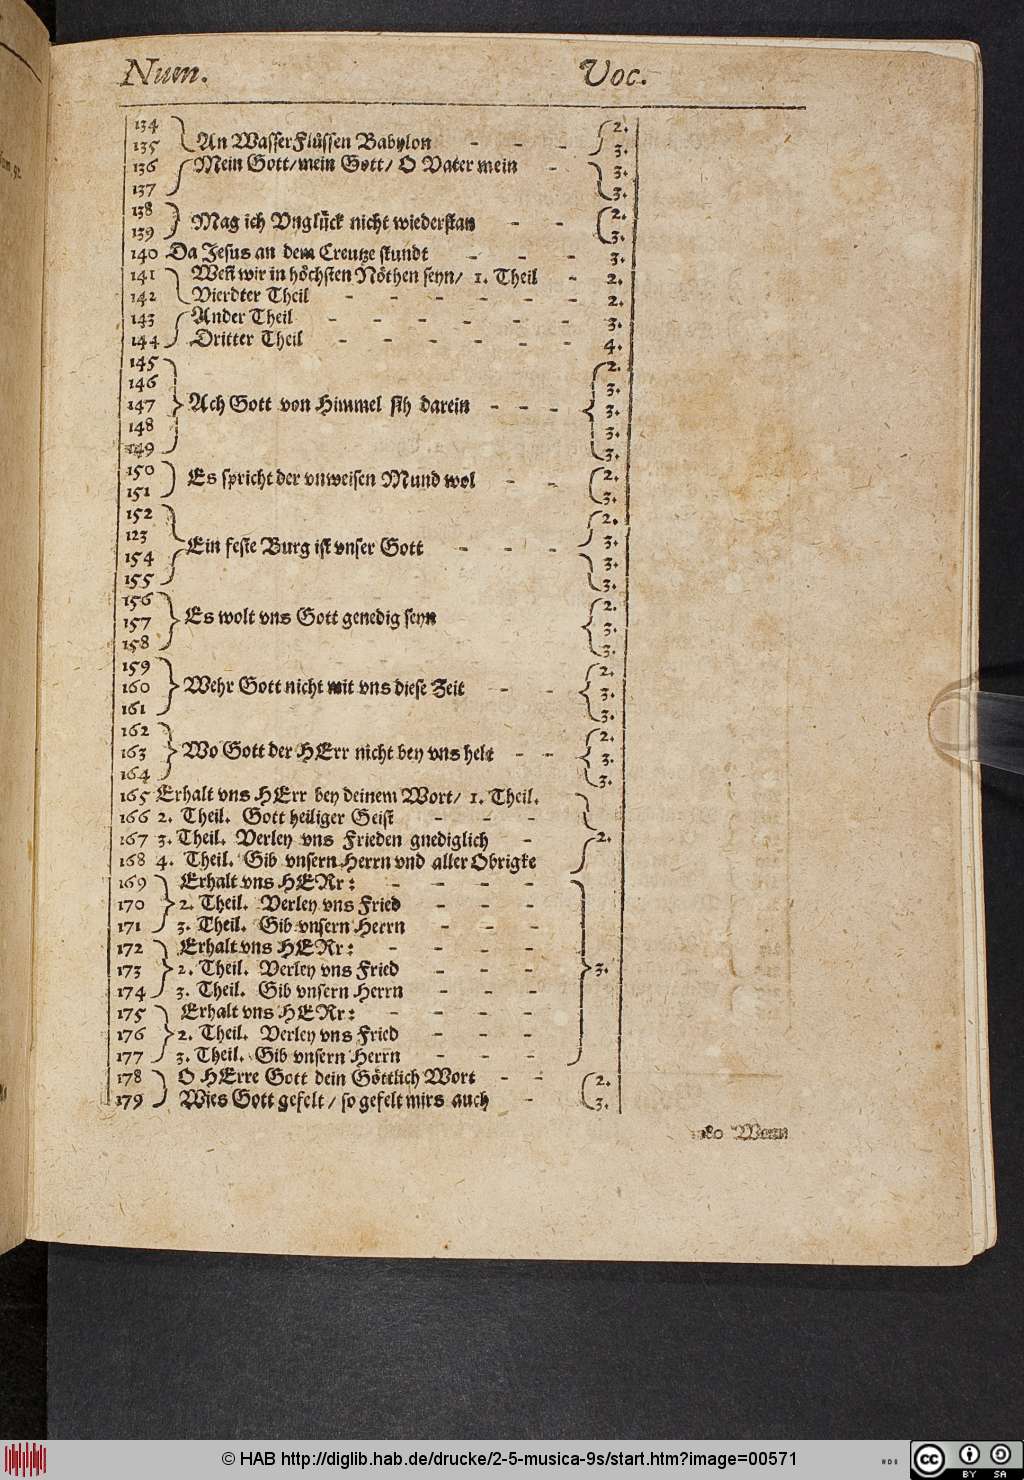 Num. Voc.
134 2.
135 An WasserFlüssen Babylon - - - 3.
136 Mein Gott/mein Gott/ O Vater mein - 3.
137 3.
138 2.
Mag ich Vnglück nicht wiederstan - -
139 3.
140 Da Jesus an dem Creutze stundt - - - 3.
141 Weñ wir in höchsten Nöthen seyn/ 1. Theil - 2.
142 Vierdter Theil - - - - - - 2.
143 Ander Theil - - - - - - 3.
144 Dritter Theil - - - - - - 4.
145 2.
146 3.
147 Ach Gott von Himmel sih darein - - - 3.
148 3.
149 3.
150 Es spricht der vnweisen Mund wol - - 2.
151 3.
152 2.
123 3.
Ein feste Burg ist vnser Gott - - -
154 3.
155 3.
156 2.
157 Es wolt vns Gott genedig seyn 3.
158 3.
159 2.
160 Wehr Gott nicht mit vns diese Zeit - - 3.
161 3.
162 2.
163 Wo Gott der HErr nicht bey vns helt - - 3.
164 3.
165 Erhalt vns HErr bey deinem Wort/ 1. Theil.
166 2. Theil. Gott heiliger Geist - - -
167 3. Theil. Verley vns Frieden gnediglich - 2.
168 4. Theil. Gib vnsern Herrn vnd aller Obrigke
169 Erhalt vns HERr: - - - -
170 2. Theil. Verley vns Fried - - -
171 3. Theil. Gib vnsern Herrn - - -
172 Erhalt vns HERr: - - - -
173 2. Theil. Verley vns Fried - - - 3.
174 3. Theil. Gib vnsern Herrn - - -
175 Erhalt vns HERr: - - - -
176 2. Theil. Verley vns Fried - - -
177 3. Theil. Gib vnsern Herrn - - -
178 O HErre Gott dein Göttlich Wort - - 2.
179 Wies Gott gefelt/ so gefelt mirs auch - 3.
180 Wenn
© HAB http://diglib.hab.de/drucke/2-5-musica-9s/start.htm?image=00571
cc BY SA